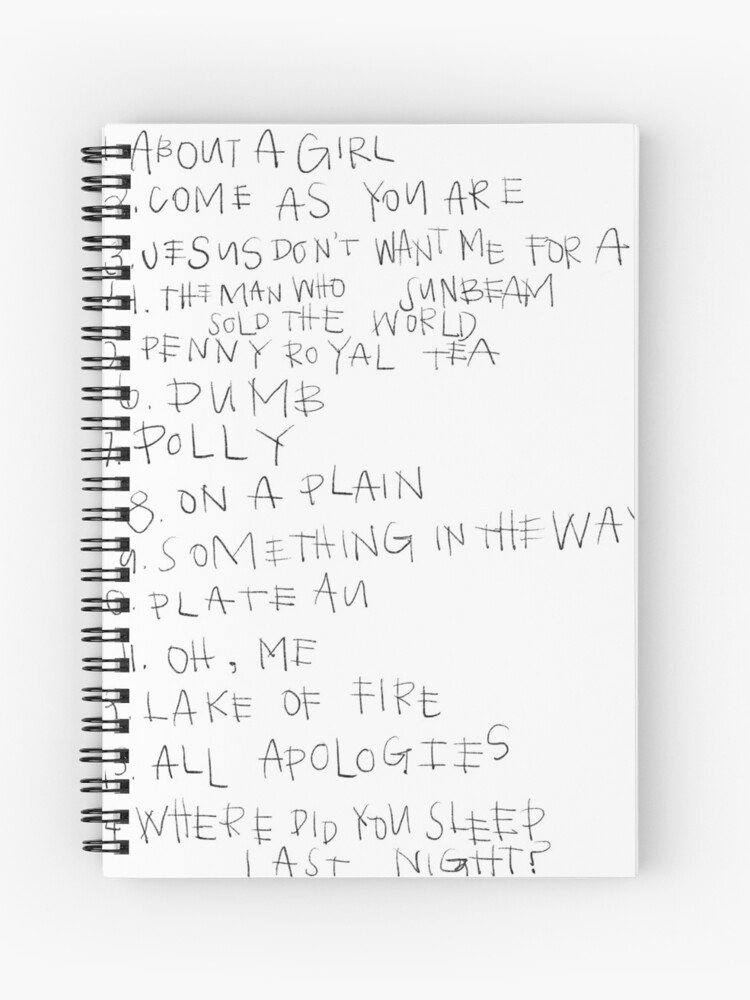 ABOUT A GIRL
2. COME AS YOU ARE
3. JESUS DON'T WANT ME FOR A
4. THE MAN WHO SUNBEAM
SOLD THE WORLD
PENNY ROYAL TEA
6. DUMB
7. POLLY
8. ON A PLAIN
9. SOMETHING IN THE WAY
PLATEAU
11. OH, ME
LAKE OF FIRE
ALL APOLOGIES
WHERE DID YOU SLEEP
LAST NIGHT?